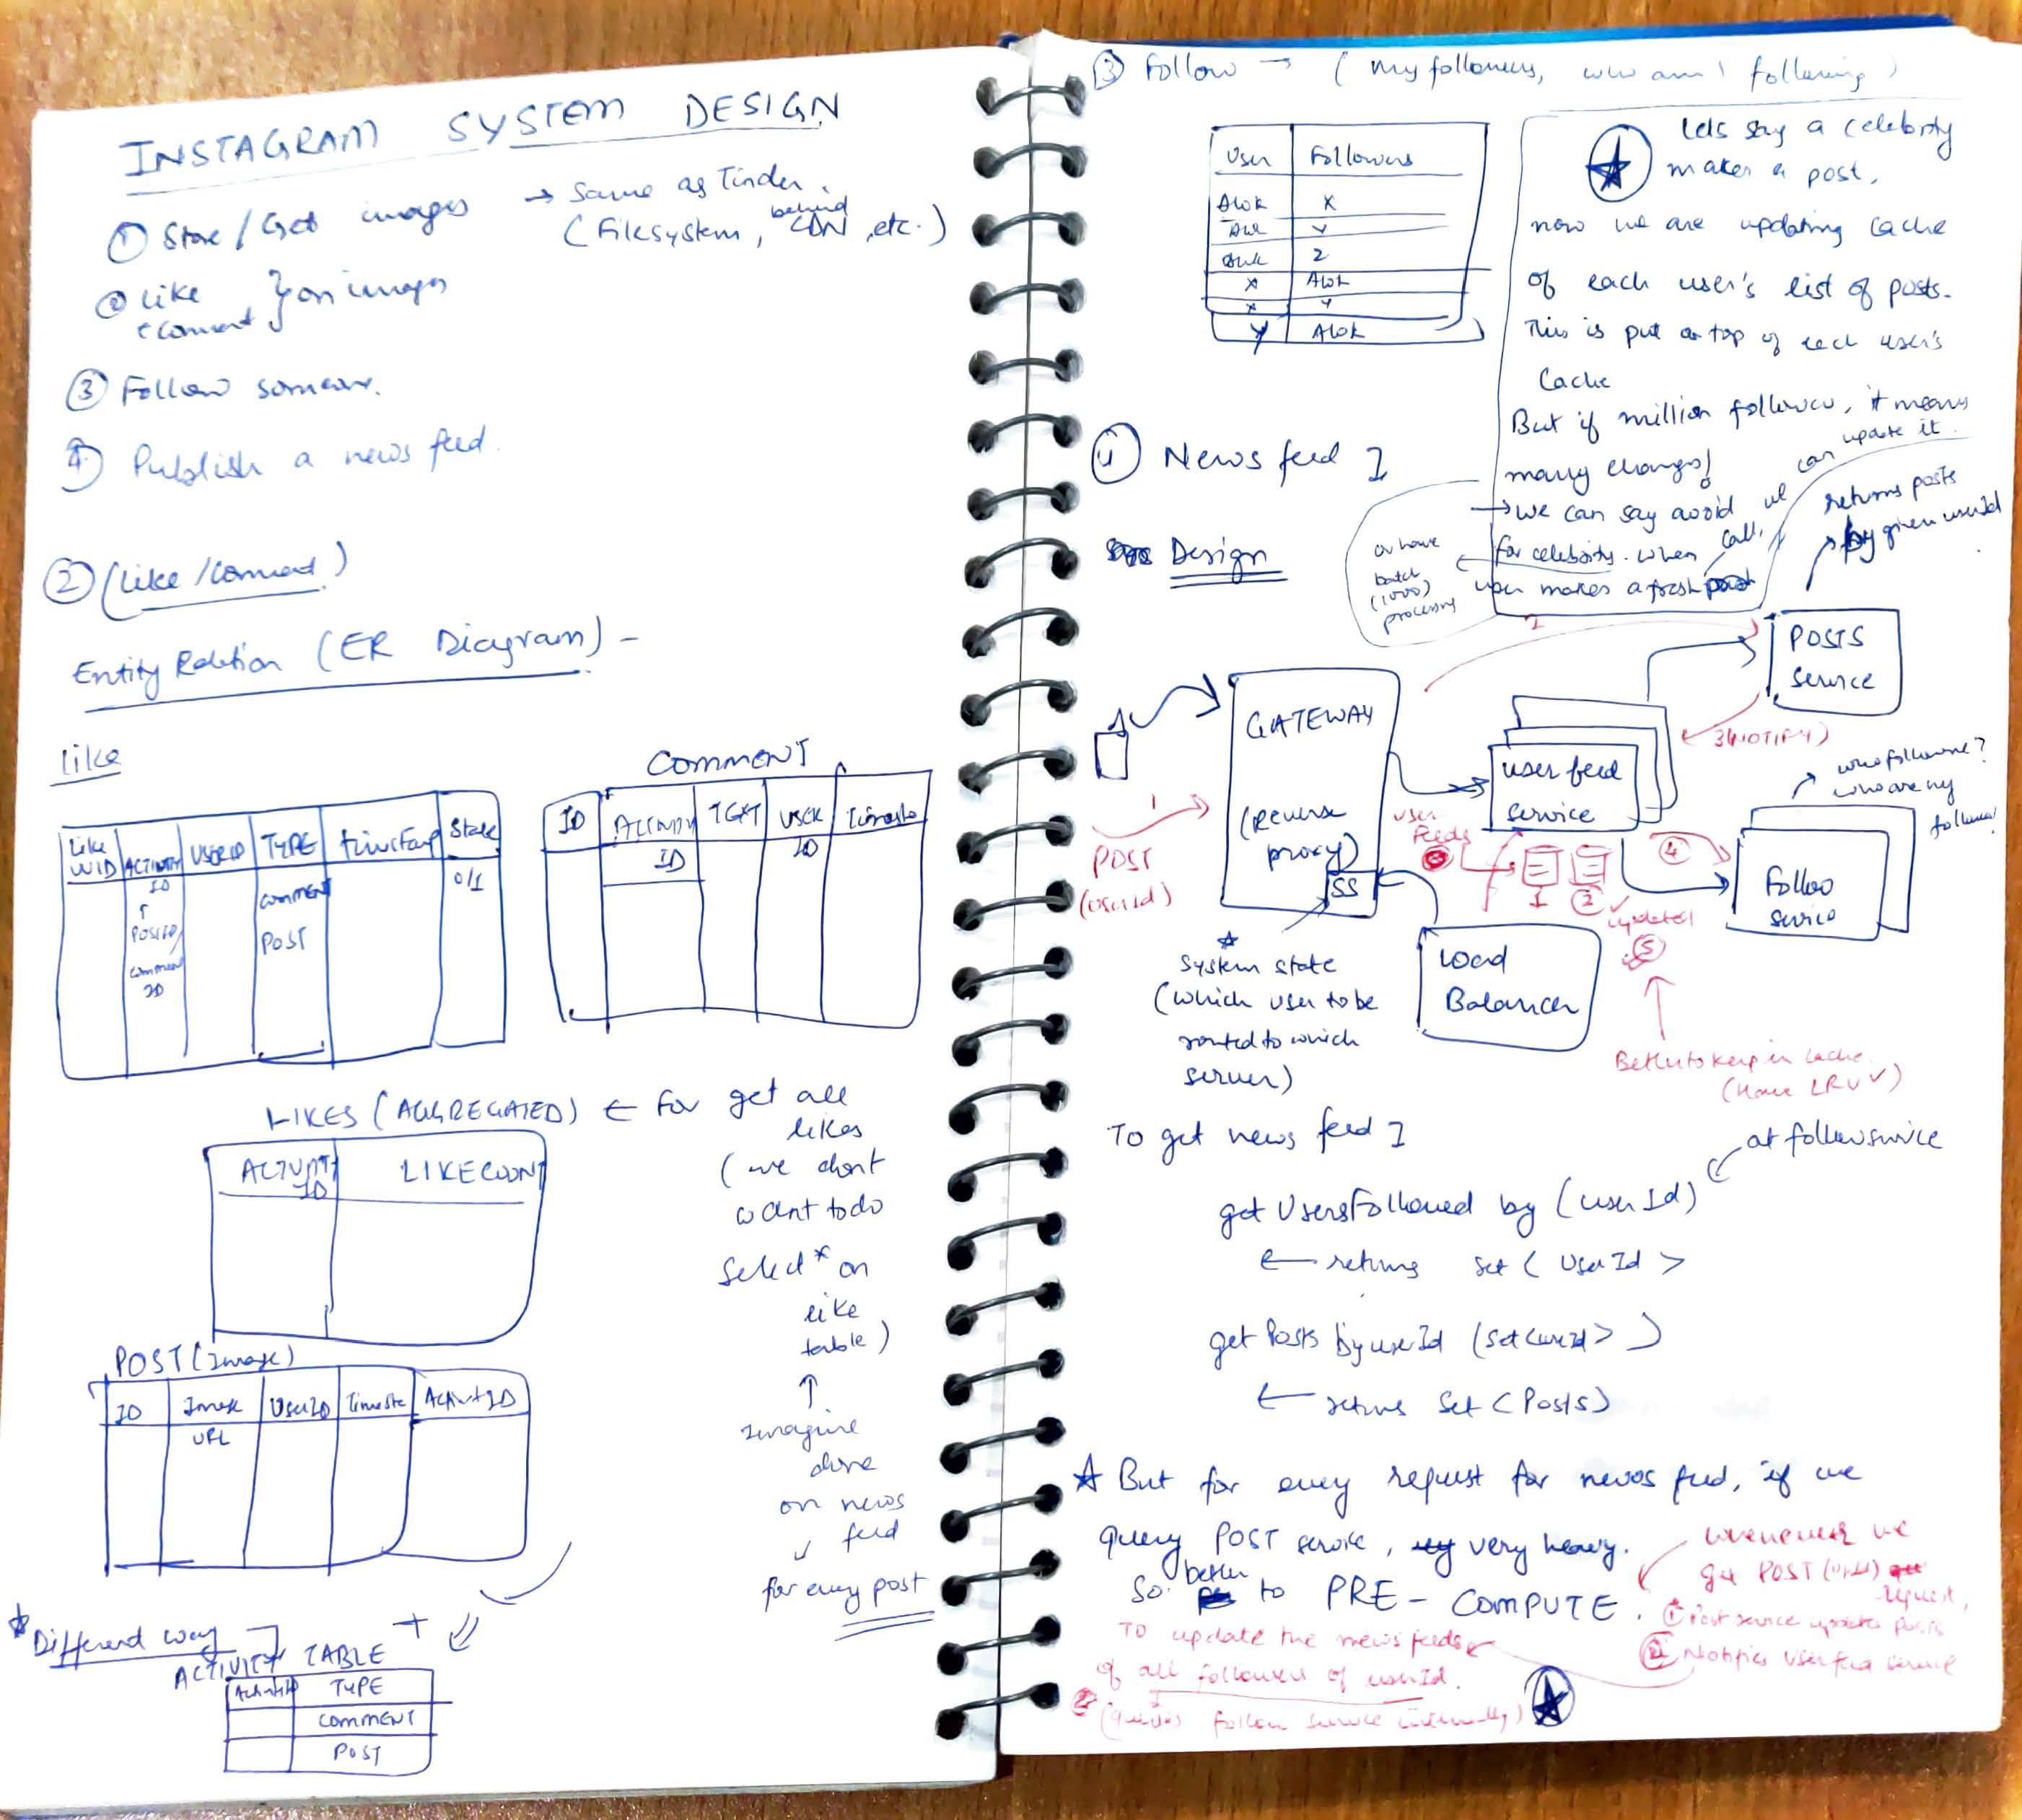 INSTAGRAM SYSTEM DESIGN
① Store / Get images → Same as Tinder.
(Filesystem, behind CDN, etc.)
② Like
comment } on images
③ Follow someone.
④ Publish a news feed.
② (Like / Comment)
Entity Relation (ER Diagram) -
Like
Like UUID | ACTIVITY ID | USERID | TYPE | timestamp | State
↑ POSTID/ comment ID | COMMENT POST | 0/1
COMMENT
ID | ACTIVITY ID | TEXT | USER ID | Timesta
LIKES (AGGREGATED) ← For get all
likes
(we dont
want to do
Select * on
like
table)
↑
Imagine
done
on news
feed
↓
for every post
ACTIVITY ID | LIKECOUNT
POST (Image)
ID | Image URL | UserID | Timesta | ActivityID
* Different way ]
ACTIVITY TABLE +
ActivityID | TYPE
COMMENT
POST
③ Follow → (My followers, who am I following)
User | Followers
Alok | X
Alok | Y
Alok | Z
X | Alok
X | Y
Y | Alok
★ Lets say a celebrity
makes a post,
now we are updating cache
of each user's list of posts.
This is put on top of each user's
Cache
But if million followers, it means
many changes!
→ We can say avoid
for celebrity. When
user makes a fresh
call, we can update it.
or have
batch
(1000)
processing
④ News feed ]
Design
returns posts
by given userId
POSTS
Service
GATEWAY
(Reverse
proxy)
SS
user feed
service
3 (NOTIFY)
2
1
POST
(userid)
User
Feeds
1 2
④
updated
⑤
who follow me?
who are my
Follow
service
★
System state
(which user to be
routed to which
server)
Load
Balancer
Better to keep in cache.
(Have LRU ✓)
To get news feed ]
at follow service
get UsersFollowed by (userId)
← returns set < UserId >
get Posts by userId (set<userId>)
← returns Set (Posts)
★ But for every request for news feed, if we
query POST service, very heavy.
So better to PRE-COMPUTE.
whenever we
get POST (userId)
request,
① Post service updates Posts
② Notifies User feed service
To update the news feeds
of all followers of userId.
(queries follow service internally) ★